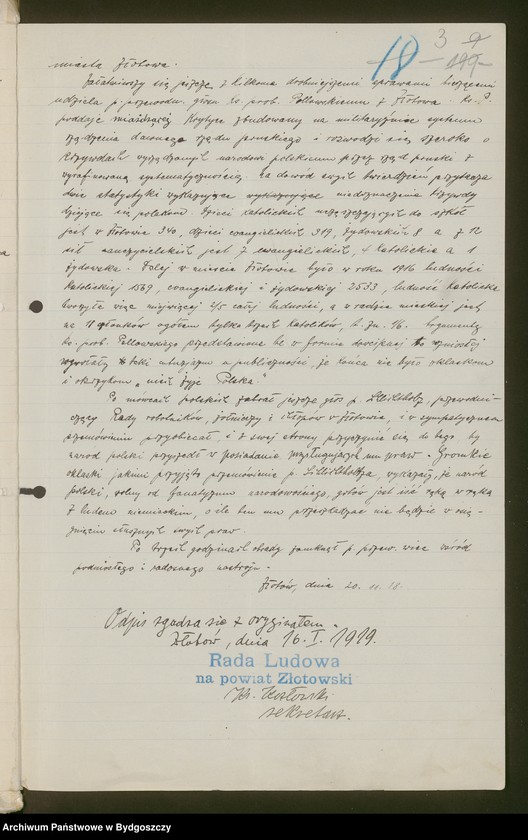 18 3
miasta Złotowa.
Załatwiwszy się jeszcze z kilkoma drobniejszemi sprawami bieżącemi
udziela p. przewodn. głosu ks. prob. Połłowskiemu z Złotowa. Ks. P.
poddaje miażdżącej krytyce zbudowany na militaryźmie systemu
rządzenia dawnego rządu pruskiego i rozwodzi się szeroko o
krzywdach wyrządzonych narodowi polskiemu przez rząd pruski z
wyrafinowaną systematycznością. Na dowód swych twierdzeń przytacza
dwie statystyki wykazujące krzywdy
dziejące się polakom. Dzieci katolickich uczęszczających do szkół
jest w Złotowie 340, dzieci ewangielickich 319, żydowskich 8 a z 12
sił nauczycielskich jest 7 ewangielickich, 4 katolickie a 1
żydowska. Dalej w mieście Złotowie było w roku 1916 ludności
katolickiej 1569, ewangielickiej i żydowskiej 2533, ludność katolicka
tworzyła więc mniejwięcej 2/5 całej ludności, a w radzie miejskiej jest
na członków ogółem tylko trzech katolików, t. zn. 1/6. Argumenty
ks. prob. Połłowskiego przedstawione w formie dowcipnej
wywołały taki entuzjazm u publiczności, że końca nie było oklaskom
i okrzykom „niech żyje Polska".
Po mówcach polskich zabrał jeszcze głos p. przewodni-
czący Rady robotników, żołnierzy i chłopów w Złotowie, i w sympatycznem
przemówieniu przyobiecał, i z swej strony przyczynić się do tego, by
naród polski przyszedł w posiadanie przysługujących mu praw. Gromkie
oklaski jakimi przyjęto przemówienie p. wykazały, że naród
polski, wolny od fanatyzmu narodowościowego, gotów jest iść ręką w rękę
z ludem niemieckim, o ile ten mu przeszkadzać nie będzie w osią-
gnięciu słusznych swych praw.
Po trzech godzinach obrady zamknął p. przew. wiec wśród
podniosłego i radosnego nastroju.
Złotów, dnia 20. 11. 18.
Odpis zgadza się z oryginałem.
Złotów, dnia 16. I. 1919.
Rada Ludowa
na powiat Złotowski
Kozłowski
sekretarz.
Archiwum Państwowe w Bydgoszczy